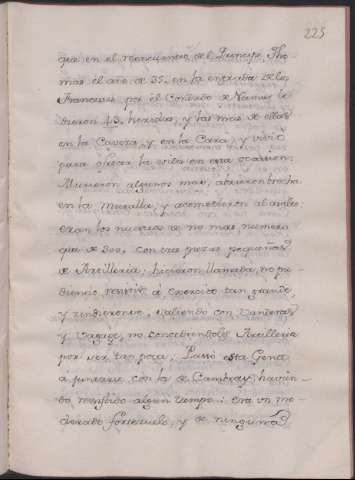 225
que en el rencuentro del Principe Tho-
mas el año de 35. en la entrada de los
Franceses por el Condado de Namur le
dieron 43. heridas, y las mas de ellas
en la Caveza, y en la Cara, y vivió
para dejar la vida en esta ocasion.
Murieron algunos mas, abrieron brecha
en la muralla, y acometieron al
eran los nuestros de no mas numero
que de 300. con tres piezas pequeñas
de Artilleria; hicieron llamada, no pu-
diendo resistir á exercito tan grande,
y rindieronse, saliendo con Vanderas
y Vagage, no concediendole Artilleria
por ser tan poca; Passó esta Gente
á juntarse con la de Cambray, havien-
do resistido algun tiempo: era un mo-
derado fortezuelo, y de ninguna